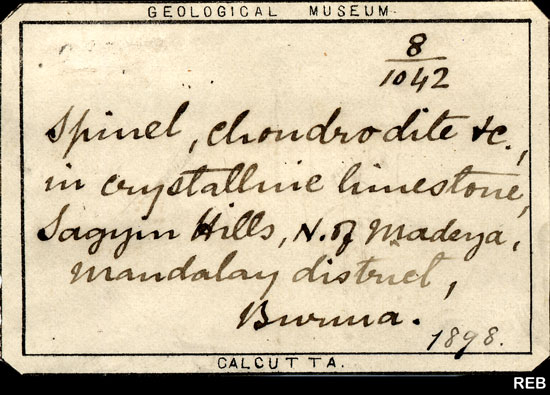 GEOLOGICAL MUSEUM.
8
1042
Spinel, chondrodite &c.,
in crystalline limestone,
Sagyin Hills, N. of Madeya,
Mandalay district,
Burma.
1898.
CALCUTTA.
REB